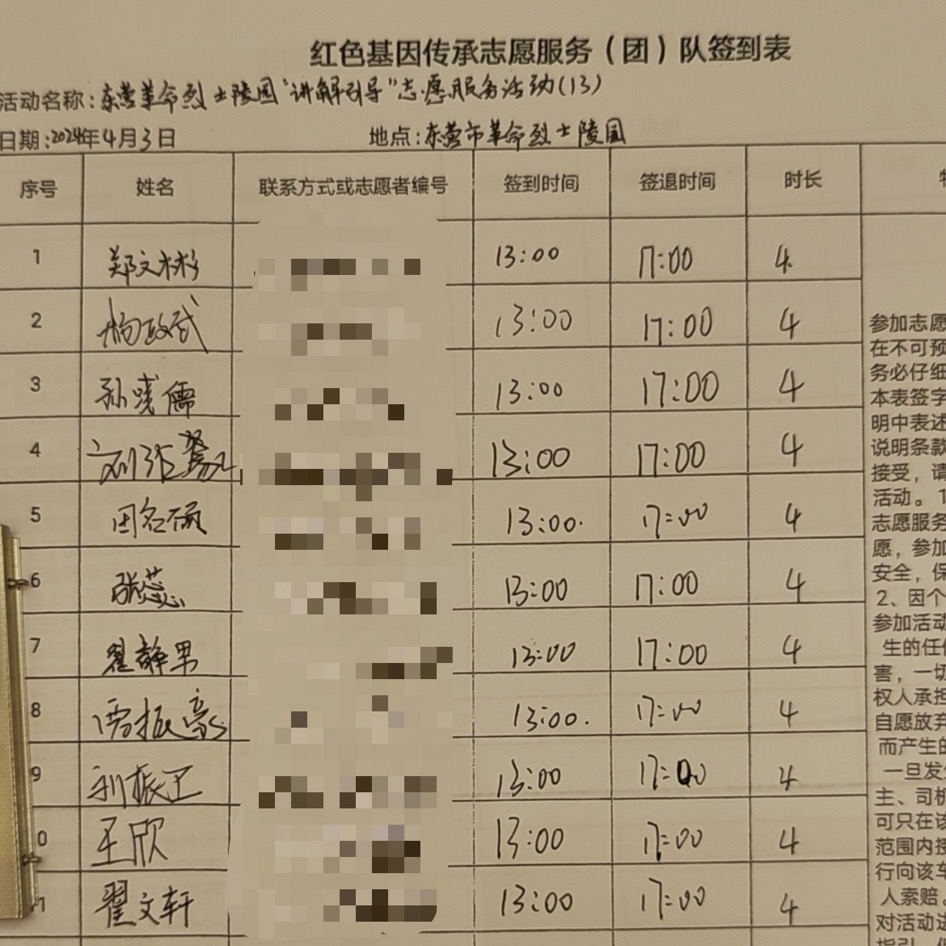 红色基因传承志愿服务（团）队签到表
活动名称：东营革命烈士陵园“讲解引导”志愿服务活动(13)
日期：2024年4月3日 地点：东营市革命烈士陵园
序号 姓名 联系方式或志愿者编号 签到时间 签退时间 时长
1 郑文彬 13:00 17:00 4
2 杨政武 13:00 17:00 4
3 孙 儒 13:00 17:00 4
4 13:00 17:00 4
5 田名硕 13:00. 17:00 4
6 张蕊 13:00 17:00 4
7 翟静男 13:00 17:00 4
8 贾振豪 13:00. 17:00 4
9 刘振卫 13:00 17:00 4
0 王欣 13:00 17:00 4
1 翟文轩 13:00 17:00 4
参加志愿
在不可预
务必仔细
本表签字
明中表述
说明条款
接受，请
活动。1
志愿服务
愿，参加
安全，保
2、因个
参加活动
生的任何
害，一切
权人承担
自愿放弃
而产生的
一旦发生
主、司机
可只在该
范围内接
行向该车
人索赔。
对活动进